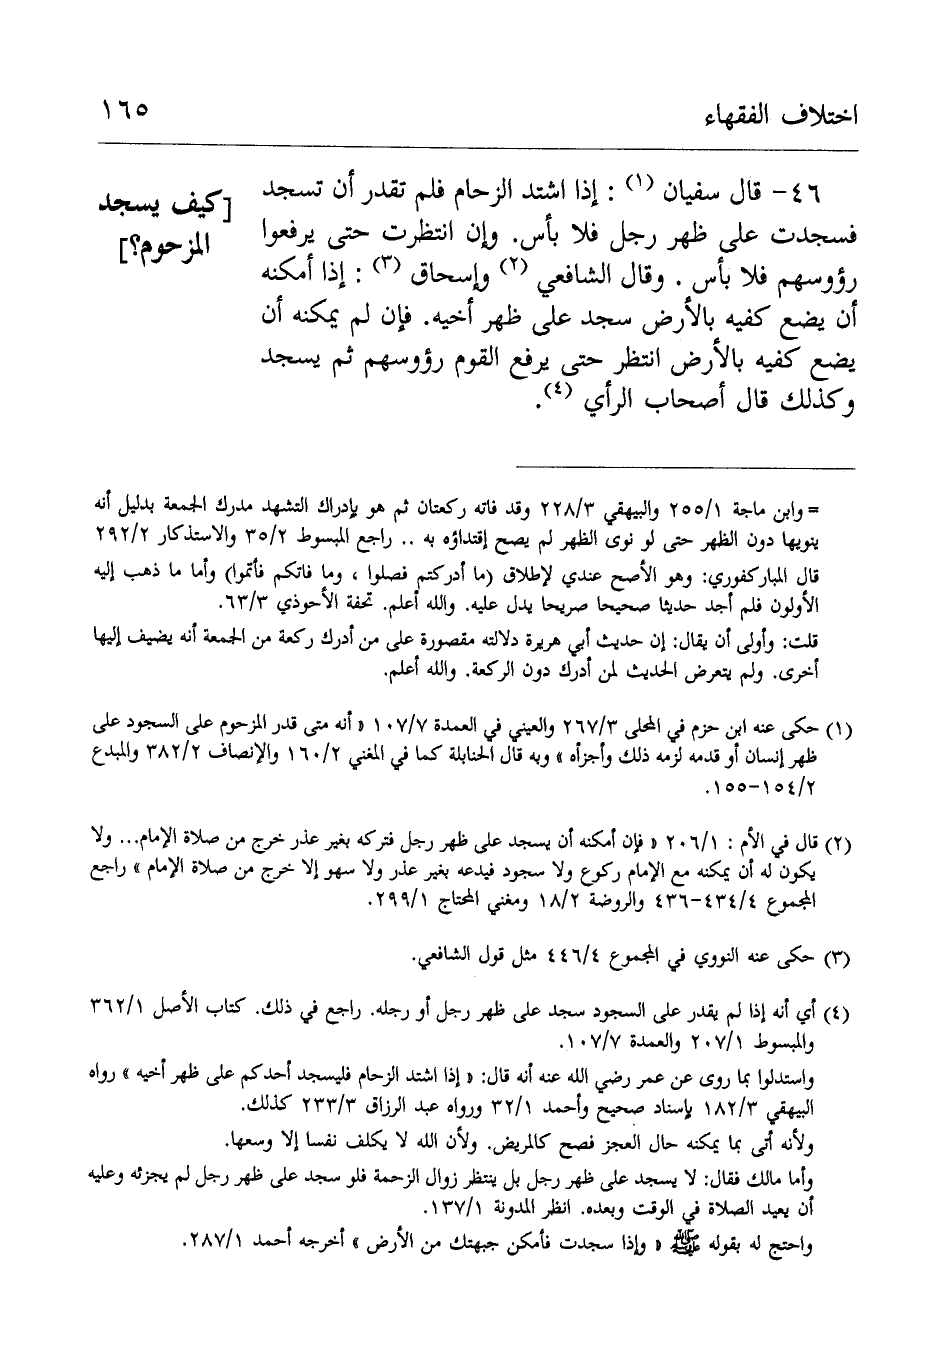 اختلاف الفقهاء
١٦٥
[كيف يسجد
المزحوم؟]
٤٦- قال سفيان (١) : إذا اشتد الزحام فلم تقدر أن تسجد
فسجدت على ظهر رجل فلا بأس. وإن انتظرت حتى يرفعوا
رؤوسهم فلا بأس . وقال الشافعي (٢) وإسحاق (٣) : إذا أمكنه
أن يضع كفيه بالأرض سجد على ظهر أخيه. فإن لم يمكنه أن
يضع كفيه بالأرض انتظر حتى يرفع القوم رؤوسهم ثم يسجد
وكذلك قال أصحاب الرأي (٤).
= وابن ماجة ٢٥٥/١ والبيهقي ٢٢٨/٣ وقد فاته ركعتان ثم هو بإدراك التشهد مدرك الجمعة بدليل أنه
ينويها دون الظهر حتى لو نوى الظهر لم يصح إقتداؤه به .. راجع المبسوط ٣٥/٢ والاستذكار ٢٩٢/٢
قال المباركفوري: وهو الأصح عندي لإطلاق (ما أدركتم فصلوا ، وما فاتكم فأتموا) وأما ما ذهب إليه
الأولون فلم أجد حديثا صحيحا صريحا يدل عليه. والله أعلم. تحفة الأحوذي ٦٣/٣.
قلت: وأولى أن يقال: إن حديث أبي هريرة دلالته مقصورة على من أدرك ركعة من الجمعة أنه يضيف إليها
أخرى. ولم يتعرض الحديث لمن أدرك دون الركعة. والله أعلم.
(١) حكى عنه ابن حزم في المحلى ٢٦٧/٣ والعيني في العمدة ١٠٧/٧ « أنه متى قدر المزحوم على السجود على
ظهر إنسان أو قدمه لزمه ذلك وأجزأه » وبه قال الحنابلة كما في المغني ١٦٠/٢ والإنصاف ٣٨٢/٢ والمبدع
١٥٤/٢-١٥٥.
(٢) قال في الأم : ٢٠٦/١ « فإن أمكنه أن يسجد على ظهر رجل فتركه بغير عذر خرج من صلاة الإمام... ولا
يكون له أن يمكنه مع الإمام ركوع ولا سجود فيدعه بغير عذر ولا سهو إلا خرج من صلاة الإمام » راجع
المجموع ٤٣٤/٤-٤٣٦ والروضة ١٨/٢ ومغني المحتاج ٢٩٩/١.
(٣) حكى عنه النووي في المجموع ٤٤٦/٤ مثل قول الشافعي.
(٤) أي أنه إذا لم يقدر على السجود سجد على ظهر رجل أو رجله. راجع في ذلك. كتاب الأصل ٣٦٢/١
والمبسوط ٢٠٧/١ والعمدة ١٠٧/٧.
واستدلوا بما روى عن عمر رضي الله عنه أنه قال: « إذا اشتد الزحام فليسجد أحدكم على ظهر أخيه » رواه
البيهقي ١٨٢/٣ بإسناد صحيح وأحمد ٣٢/١ ورواه عبد الرزاق ٢٣٣/٣ كذلك.
ولأنه أتى بما يمكنه حال العجز فصح كالمريض. ولأن الله لا يكلف نفسا إلا وسعها.
وأما مالك فقال: لا يسجد على ظهر رجل بل ينتظر زوال الزحمة فلو سجد على ظهر رجل لم يجزئه وعليه
أن يعيد الصلاة في الوقت وبعده. انظر المدونة ١٣٧/١.
واحتج له بقوله ﷺ « وإذا سجدت فأمكن جبهتك من الأرض » أخرجه أحمد ٢٨٧/١.